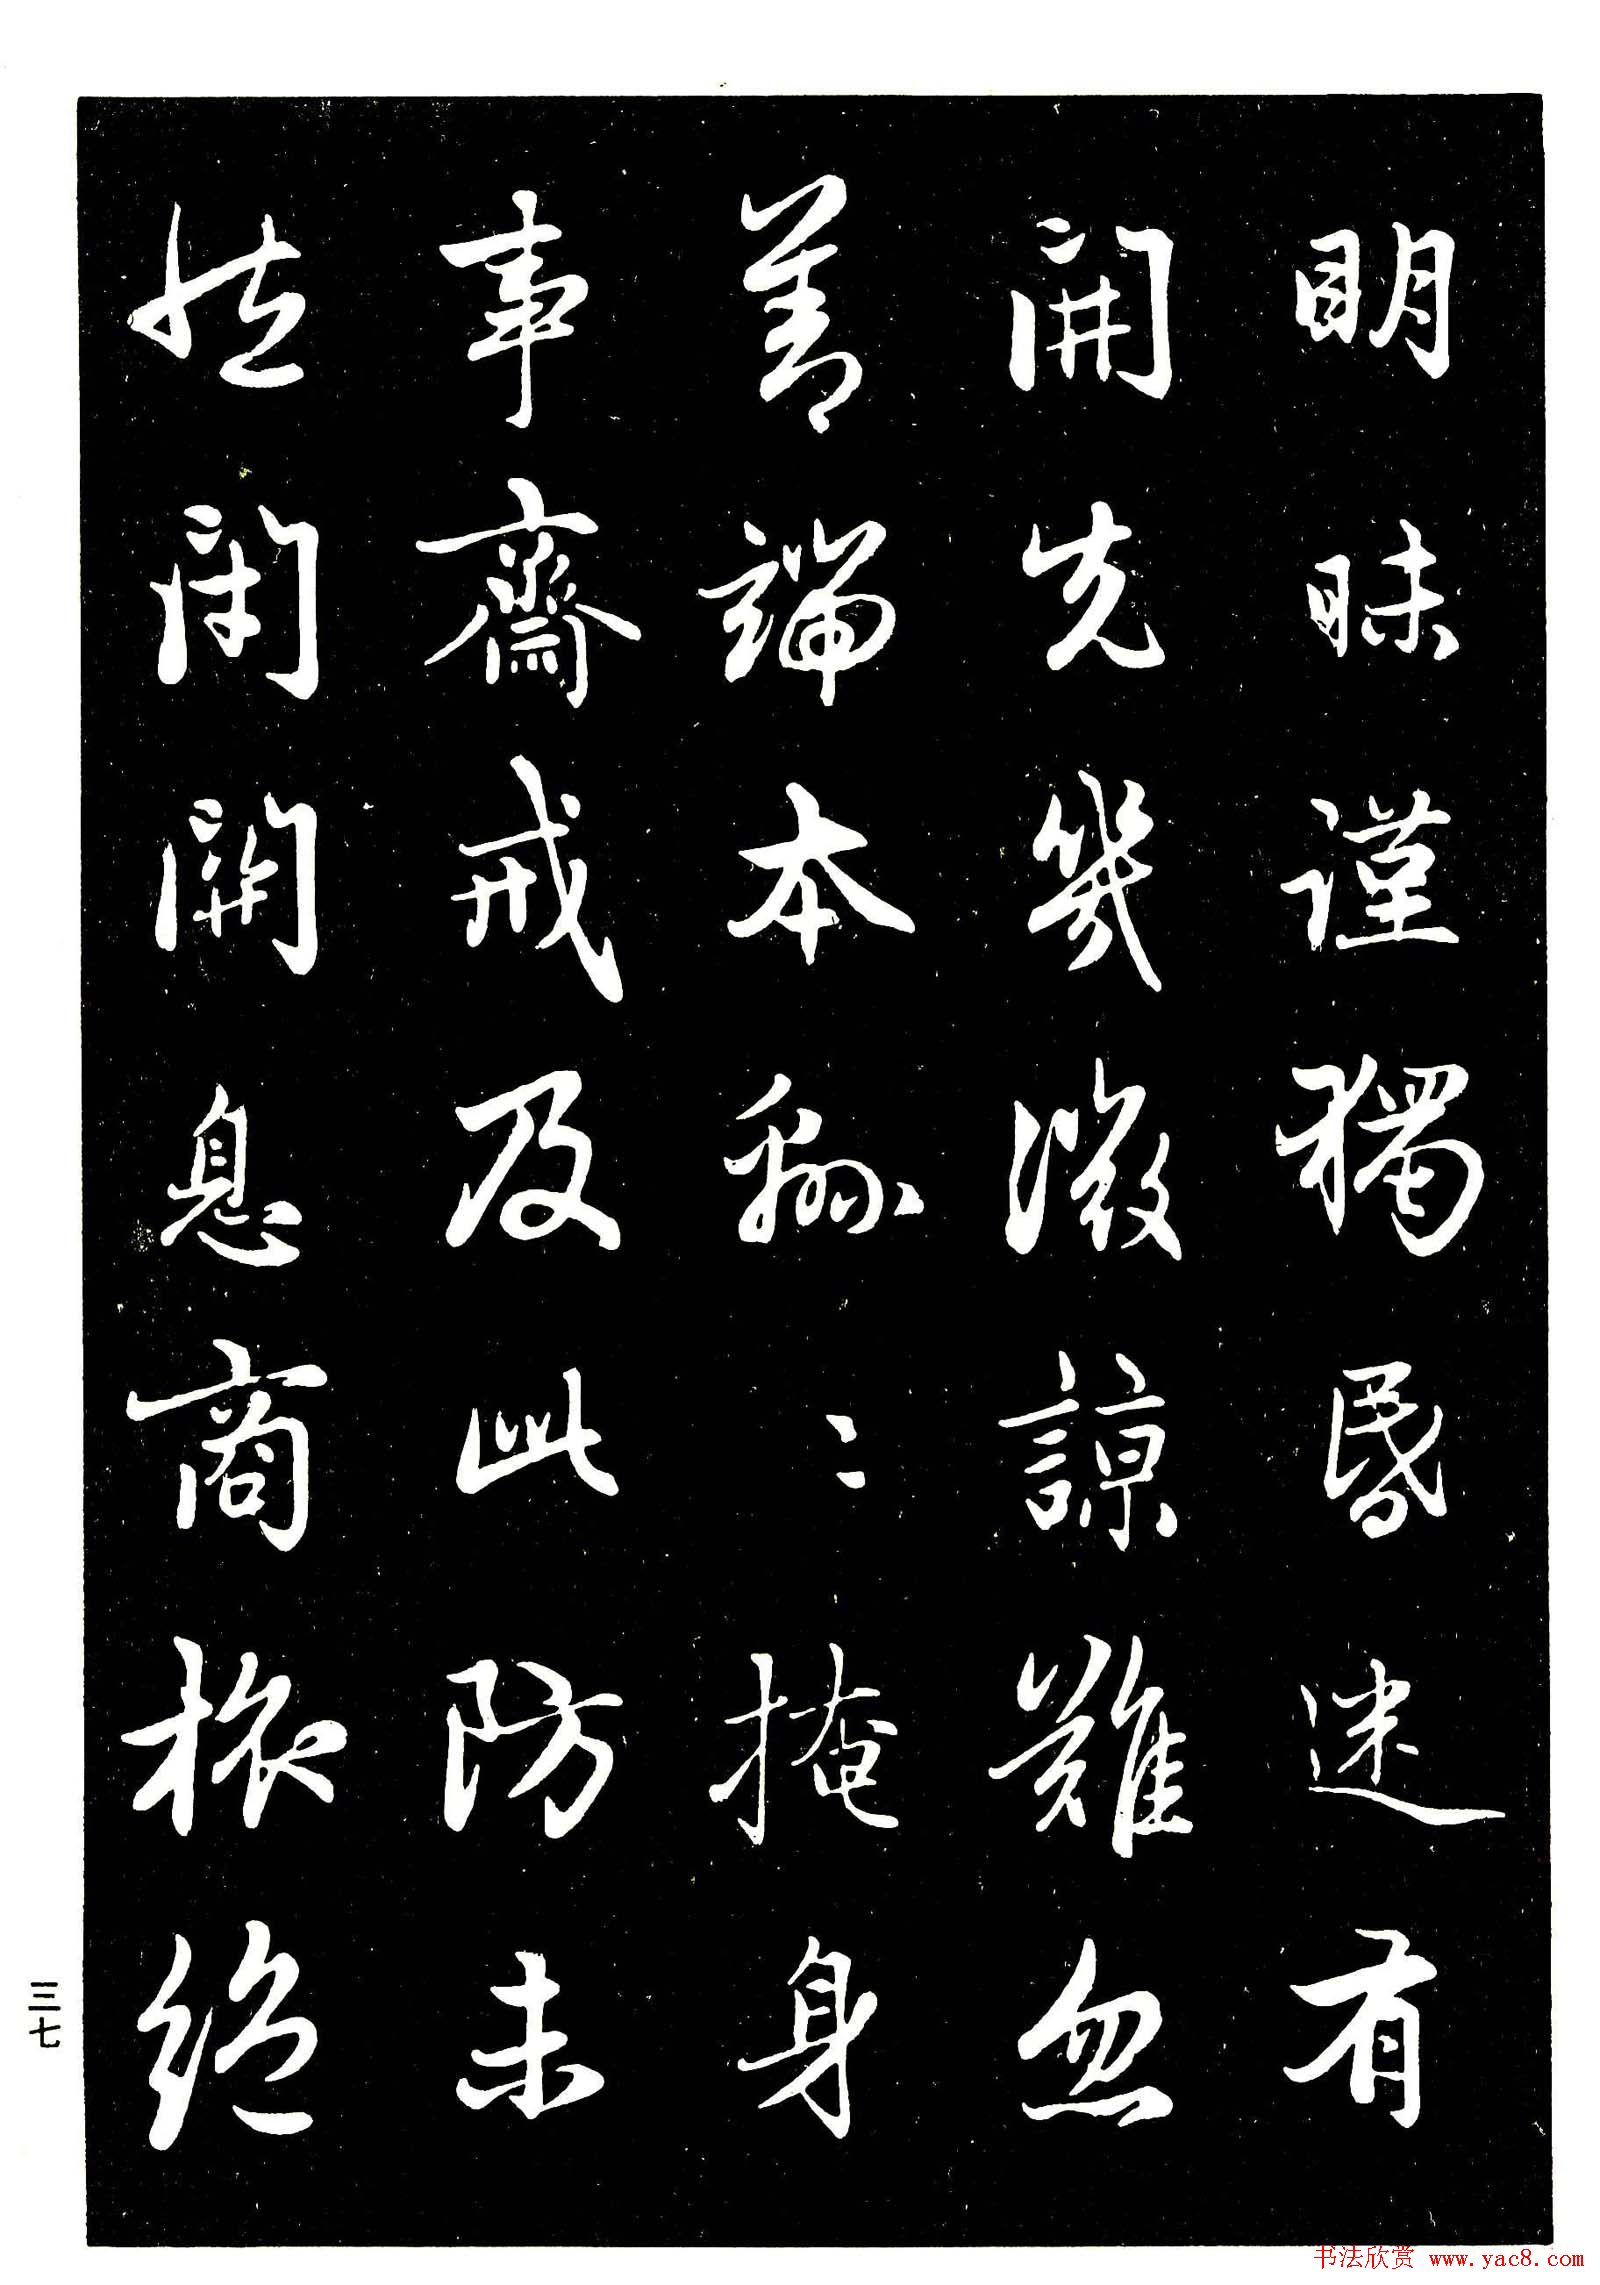 明昧謹獨昏迷有
開先幾微諒難忽
善端本緜〻掩身
事齋戒及此防未
然閉關息商旅絕
三七
书法欣赏 www.yac8.com